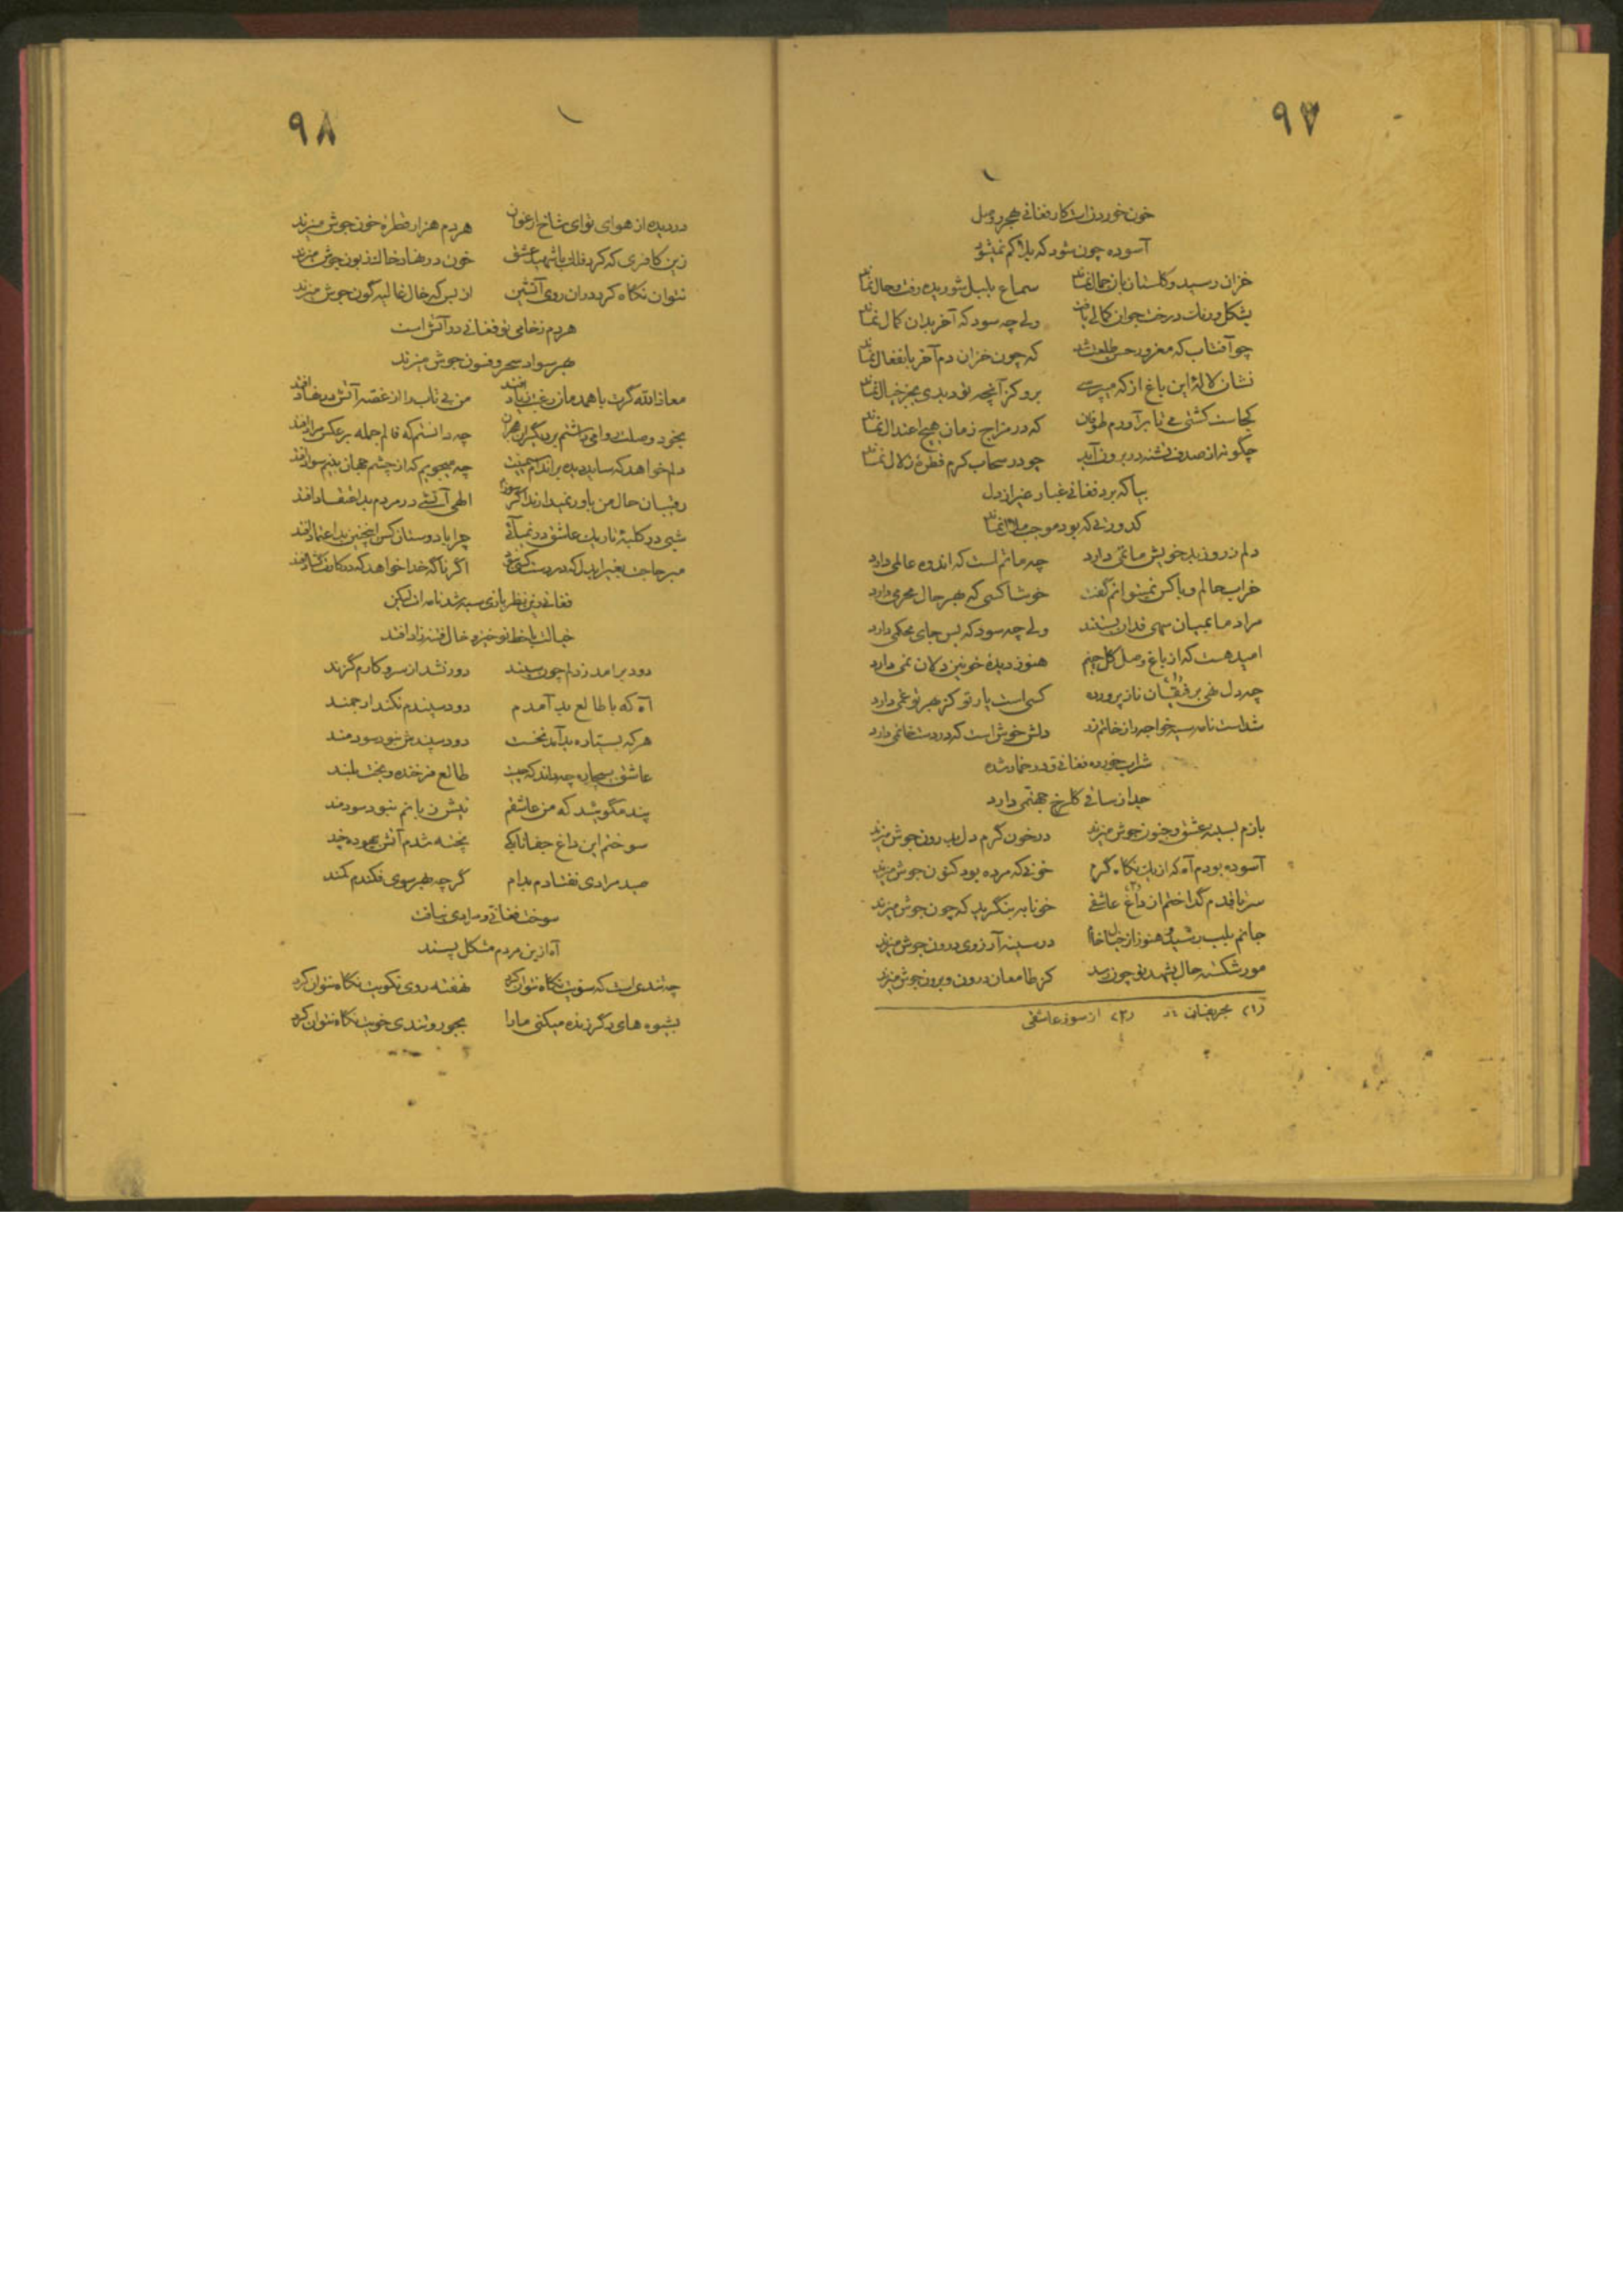 ۹۷
خون خوردن است کار فغانی ز هجر و وصل
آسوده چون شود که بلا کم نمیشود
خزان رسید و گلستان بان جمال نماند سماع بلبل شوریده رفت و حال نماند
بشکل و رنگ درخت جوان کمالی یافت ولی چه سود که آخر بدان کمال نماند
چو آفتاب که مغرور حسن طلعت شد که چون خزان دم آخر بانفعال نماند
نشان لالهٔ این باغ از که میپرسی برو کز آنچه تو دیدی بجز خیال نماند
کجاست کشتی می تا برآورم طوفان که در مزاج زمان هیچ اعتدال نماند
چگونه از صدف تشنه در برون آید چو در سحاب کرم قطرهٔ زلال نماند
بیا که برد فغانی غبار غیر از دل
کدورتی که بود موجب ملال نماند
دلم ز روز بد خویش ماتمی دارد چه ماتم است که اندوه عالمی دارد
خراب حالم و با کس نمیتوانم گفت خوشا کسی که بهر حال محرمی دارد
مراد ما بمیان سهی قدان بستند ولی چه سود که بس جای محکمی دارد
امید هست که از باغ وصل گل چینم هنوز دیدهٔ خونین دلان نمی دارد
چه دل نهی برفیقان ناز پرورده کسی است یار تو کز بهر تو غمی دارد
شداست نامه سیه خواجه را ز خاتم زر دلش خوش است که در دست خاتمی دارد
شراب خورده فغانی و در خمار شده
جدا ز ساقی گلرخ جهنمی دارد
بازم بسینه عشق و جنون جوش میزند در خون گرم دل بدرون جوش میزند
آسوده بودم آه که از یک نگاه گرم خونی که مرده بود کنون جوش میزند
سر تا قدم گداختم از داغ عاشقی خونابه بنگرید که چون جوش میزند
جانم بلب رسید و هنوز از خیال خام در سینه آرزوی درون جوش میزند
مور شکسته حال بشهد تو چون رسد کز طامعان درون و برون جوش میزند
(۱) بحریفان (۲) از سوز عاشقی
۹۸
در دیده از هوای تو ای شاخ ارغوان هر دم هزار قطرهٔ خون جوش میزند
زین کافری که کرد فلک با شهید عشق خون در نهاد خاک زبون جوش میزند
نتوان نگاه کرد در آن روی آتشین از بس که خال غالیه گون جوش میزند
هر دم ز خامی تو فغانی در آتش است
بهر سواد سحر و فسون جوش میزند
معاذالله گرت با همدمان رغبت زیاد افتد من بی تاب را از غصه آتش در نهاد افتد
بخود وصلت روا می داشتم بر دیگران هجران چه دانستم که فالم جمله بر عکس مراد افتد
دلم خواهد که ساید دیده بر اندام سیمینت چه میجویم که از چشم جهان بینم سواد افتد
رقیبان حال من باور نمیدارند اگر سوزم الهی آتشی در مردم بد اعتقاد افتد
شبی در کلبهٔ تاریک عاشق در نمیآئی چرا با دوستان کس اینچنین بد اعتماد افتد
مبر حاجت بغیر ایدل که در دست کسی اگر ناگه خدا خواهد که در کارت گشاد افتد
فغانی زین نظربازی سیه شد نامه ات لیکن
خیالت با خط نوخیز و خال فتنه زاد افتد
دود برآمد ز دلم چون سپند دور نشد از سر و کارم گزند
آه که با طالع بد آمدم دود سپندم نکند ارجمند
هر که بستاره بد آمد نخست دود سپندش نبود سودمند
عاشق بیچاره چه داند که چیست طالع فرخنده و بخت بلند
پند مگوئید که من عاشقم نیش زبانم نبود سودمند
سوختم این داغ جفا تا بکی پخته شدم آتش بیهوده چند
صید مرادی نفتادم بدام گرچه بهر سوی فکندم کمند
سوخت فغانی و مرادی نیافت
آه ازین مردم مشکل پسند
چه تندی است که سویت نگاه نتوان کرد نهفته روی نکویت نگاه نتوان کرد
بشیوه های دگر زنده میکنی ما را بجور و تندی خویت نگاه نتوان کرد